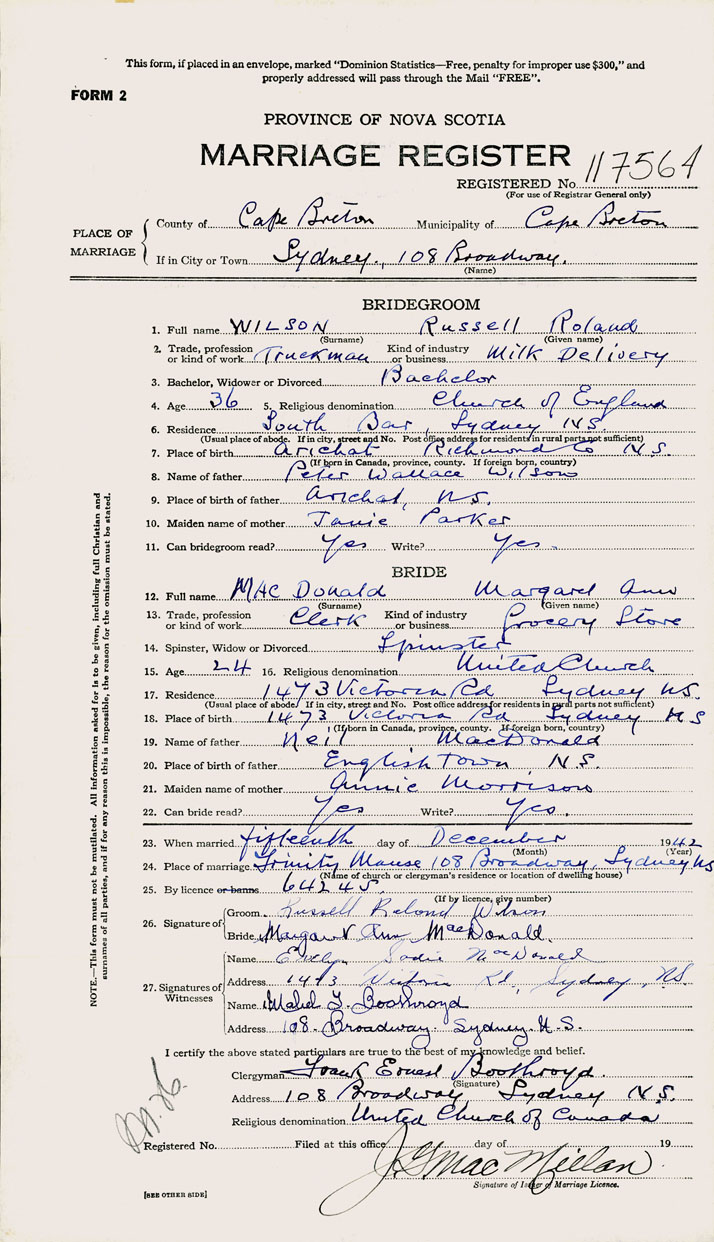 This form, if placed in an envelope, marked "Dominion Statistics—Free, penalty for improper use $300," and
properly addressed will pass through the Mail "FREE".
FORM 2
PROVINCE OF NOVA SCOTIA
MARRIAGE REGISTER
REGISTERED No. 117564
(For use of Registrar General only)
PLACE OF MARRIAGE
County of Cape Breton Municipality of Cape Breton
If in City or Town Sydney, 108 Broadway.
(Name)
BRIDEGROOM
1. Full name WILSON Russell Roland
(Surname) (Given name)
2. Trade, profession or kind of work Truckman Kind of industry or business Milk Delivery
3. Bachelor, Widower or Divorced Bachelor
4. Age 36 5. Religious denomination Church of England
6. Residence South Bar, Sydney N.S.
(Usual place of abode. If in city, street and No. Post office address for residents in rural parts not sufficient)
7. Place of birth Arichat Richmond Co N.S.
(If born in Canada, province, county. If foreign born, country)
8. Name of father Peter Wallace Wilson
9. Place of birth of father Arichat, N.S.
10. Maiden name of mother Janie Parker
11. Can bridegroom read? Yes Write? Yes.
BRIDE
12. Full name MAC Donald Margaret Ann
(Surname) (Given name)
13. Trade, profession or kind of work Clerk Kind of industry or business Grocery Store
14. Spinster, Widow or Divorced Spinster
15. Age 24 16. Religious denomination United Church
17. Residence 1473 Victoria Rd Sydney N.S.
(Usual place of abode. If in city, street and No. Post office address for residents in rural parts not sufficient)
18. Place of birth 1473 Victoria Rd Sydney N S
(If born in Canada, province, county. If foreign born, country)
19. Name of father Neil MacDonald
20. Place of birth of father English Town N.S.
21. Maiden name of mother Annie Morrison
22. Can bride read? Yes Write? Yes.
23. When married fifteenth day of December 1942
(Month) (Year)
24. Place of marriage Trinity Manse 108 Broadway, Sydney NS
(Name of church or clergyman's residence or location of dwelling house)
25. By licence or banns 64245.
(If by licence, give number)
26. Signature of
Groom Russell Roland Wilson
Bride Margaret Ann MacDonald.
27. Signatures of Witnesses
Name Evelyn Sadie MacDonald
Address 1473 Victoria Rd, Sydney, N.S.
Name Mabel Y. Boothroyd
Address 108 Broadway Sydney N.S.
I certify the above stated particulars are true to the best of my knowledge and belief.
Clergyman Frank Ernest Boothroyd.
(Signature)
Address 108 Broadway, Sydney N.S.
Religious denomination United Church of Canada
Registered No. Filed at this office day of 19
J G MacMillan
Signature of Issuer of Marriage Licence.
[SEE OTHER SIDE]
NOTE.—This form must not be mutilated. All information asked for is to be given, including full Christian and
surnames of all parties, and if for any reason this is impossible, the reason for the omission must be stated.